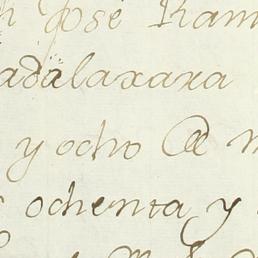 Jose Ram
adalaxara
y ocho @ m
ochenta y